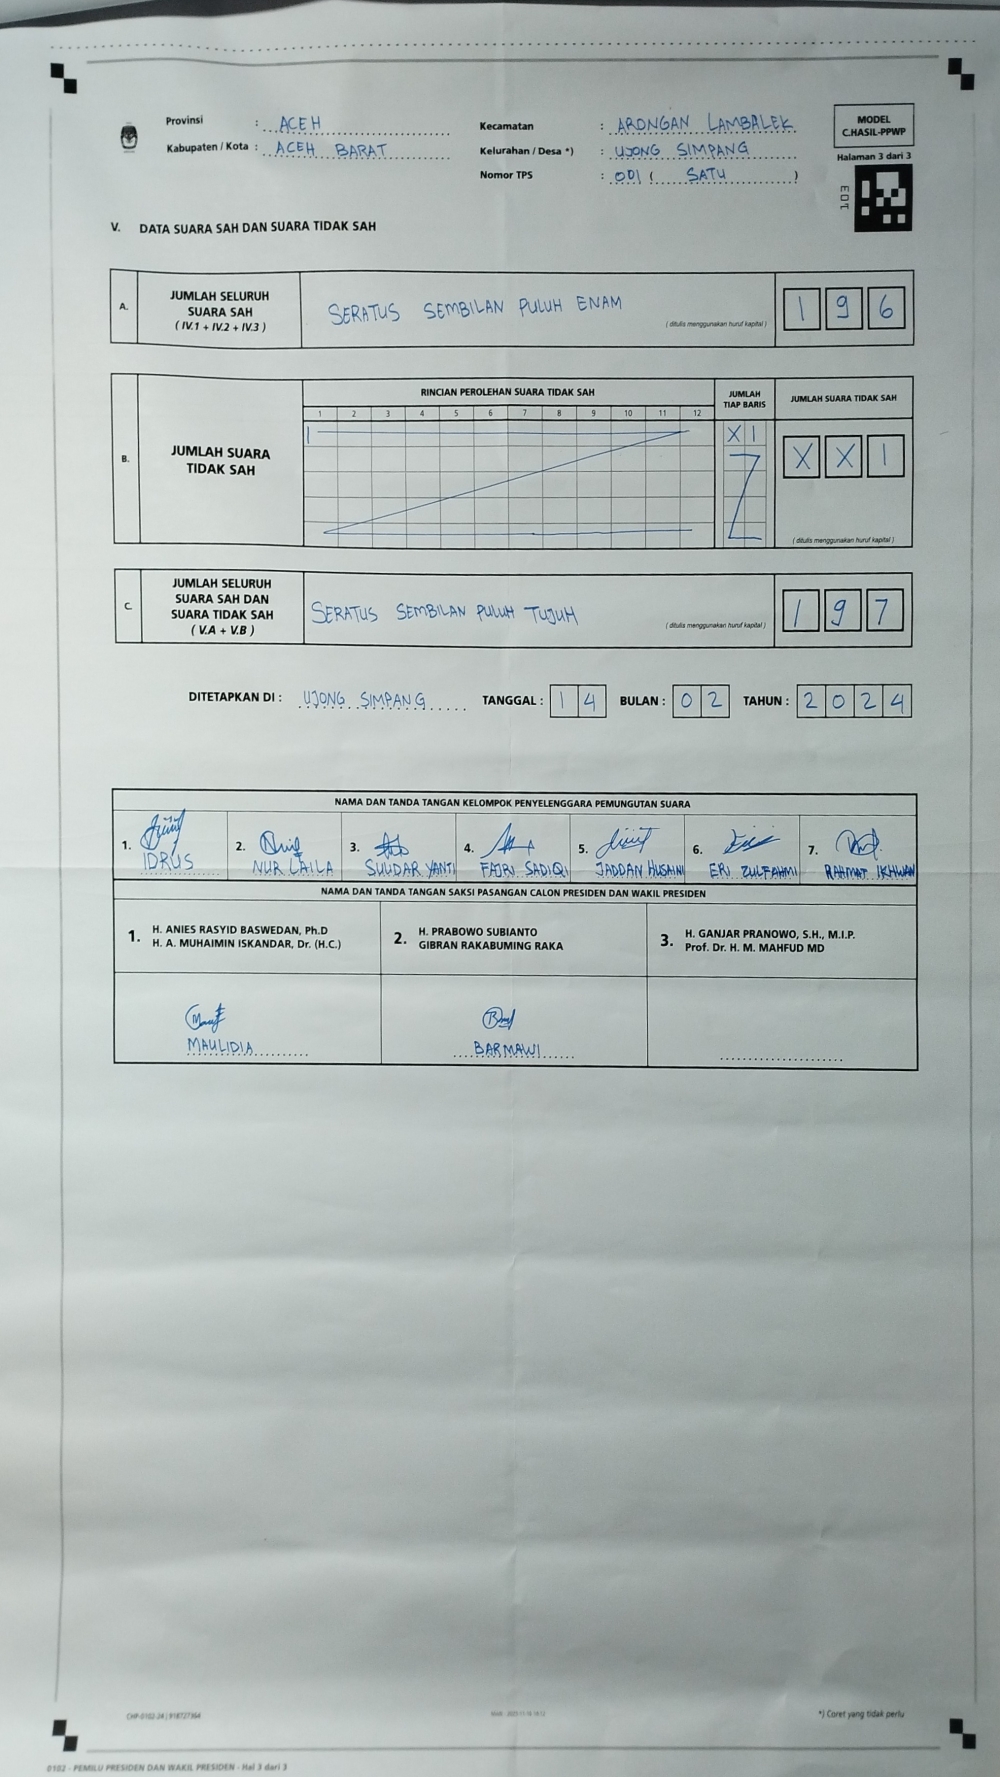 Provinsi : ACEH
Kabupaten / Kota : ACEH BARAT
Kecamatan : ARONGAN LAMBALEK
Kelurahan / Desa *) : UJONG SIMPANG
Nomor TPS : 001 ( SATU )
MODEL
C.HASIL-PPWP
Halaman 3 dari 3
103
V. DATA SUARA SAH DAN SUARA TIDAK SAH
A. JUMLAH SELURUH
SUARA SAH
( IV.1 + IV.2 + IV.3 )
SERATUS SEMBILAN PULUH ENAM
( ditulis menggunakan huruf kapital )
1 9 6
RINCIAN PEROLEHAN SUARA TIDAK SAH
1 2 3 4 5 6 7 8 9 10 11 12
JUMLAH
TIAP BARIS
JUMLAH SUARA TIDAK SAH
B. JUMLAH SUARA
TIDAK SAH
X 1
X X 1
( ditulis menggunakan huruf kapital )
C. JUMLAH SELURUH
SUARA SAH DAN
SUARA TIDAK SAH
( V.A + V.B )
SERATUS SEMBILAN PULUH TUJUH
( ditulis menggunakan huruf kapital )
1 9 7
DITETAPKAN DI : UJONG SIMPANG TANGGAL : 1 4 BULAN : 0 2 TAHUN : 2 0 2 4
NAMA DAN TANDA TANGAN KELOMPOK PENYELENGGARA PEMUNGUTAN SUARA
1. IDRUS
2. NUR LAILA
3. SULIDAR YANTI
4. FAJRI SADIQI
5. JADDAN HUSAINI
6. ERI ZULFAHMI
7. RAHMAT IKHWAN
NAMA DAN TANDA TANGAN SAKSI PASANGAN CALON PRESIDEN DAN WAKIL PRESIDEN
1. H. ANIES RASYID BASWEDAN, Ph.D
H. A. MUHAIMIN ISKANDAR, Dr. (H.C.)
2. H. PRABOWO SUBIANTO
GIBRAN RAKABUMING RAKA
3. H. GANJAR PRANOWO, S.H., M.I.P.
Prof. Dr. H. M. MAHFUD MD
MAULIDIA
BARMAWI
CHP-0102-24 | 918727364
*) Coret yang tidak perlu
0102 - PEMILU PRESIDEN DAN WAKIL PRESIDEN - Hal 3 dari 3